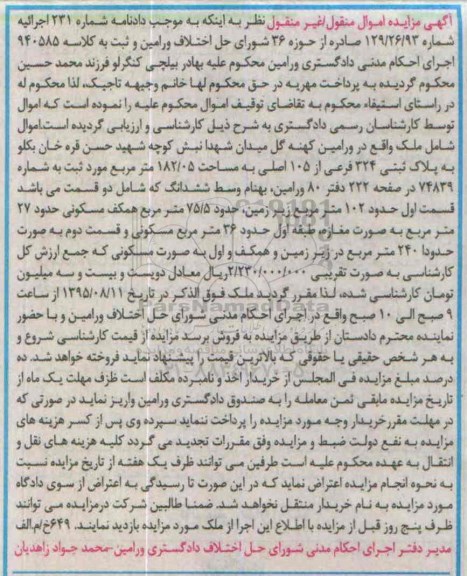 آگهی مزایده اموال منقول/غیر منقول نظر به اینکه به موجب دادنامه شماره ۲۳۱ اجرائیه
شماره ۱۲۹/۲۶/۹۳ صادره از حوزه ۳۶ شورای حل اختلاف ورامین و ثبت به کلاسه ۹۴۰۵۸۵
اجرای احکام مدنی دادگستری ورامین محکوم علیه بهادر بیلچی کنگرلو فرزند محمد حسین
محکوم گردیده به پرداخت مهریه در حق محکوم لها خانم وجیهه تاجیک، لذا محکوم له
در راستای استیفاء محکوم به تقاضای توقیف اموال محکوم علیه را نموده است که اموال
توسط کارشناسان رسمی دادگستری به شرح ذیل کارشناسی و ارزیابی گردیده است.اموال
شامل ملک واقع در ورامین کهنه گل میدان شهدا نبش کوچه شهید حسن قره خان بکلو
به پلاک ثبتی ۳۲۴ فرعی از ۱۰۵ اصلی به مساحت ۱۸۲/۰۵ متر مربع مورد ثبت به شماره
۷۴۸۳۹ در صفحه ۲۲۲ دفتر ۸۰ ورامین، بهنام وسط ششدانگ که شامل دو قسمت می باشد
قسمت اول حدود ۱۰۲ متر مربع زیر زمین، حدود ۷۵/۵ متر مربع همکف مسکونی حدود ۲۷
متر مربع به صورت مغازه، طبقه اول حدود ۳۶ متر مربع مسکونی و قسمت دوم به صورت
حدودا ۲۴۰ متر مربع در زیر زمین و همکف و اول به صورت مسکونی که جمع ارزش کل
کارشناسی به صورت تقریبی ۲/۲۳۰/۰۰۰/۰۰۰ریال معادل دویست و بیست و سه میلیون
تومان کارشناسی شده، لذا مقرر گردید ملک فوق الذکر در تاریخ ۱۳۹۵/۰۸/۱۱ از ساعت
۹ صبح الی ۱۰ صبح واقع در اجرای احکام مدنی شورای حل اختلاف ورامین و با حضور
نماینده محترم دادستان از طریق مزایده به فروش برسد مزایده از قیمت کارشناسی شروع و
به هر شخص حقیقی یا حقوقی که بالاترین قیمت را پیشنهاد نماید فروخته خواهد شد. ده
درصد مبلغ مزایده فی المجلس از خریدار اخذ و نامبرده مکلف است ظرف مهلت یک ماه از
تاریخ مزایده مابقی ثمن معامله را به صندوق دادگستری ورامین واریز نماید در صورتی که
در مهلت مقرر خریدار وجه مورد مزایده را پرداخت ننماید سپرده وی پس از کسر هزینه های
مزایده به نفع دولت ضبط و مزایده وفق مقررات تجدید می گردد کلیه هزینه های نقل و
انتقال به عهده محکوم علیه است طرفین می توانند ظرف یک هفته از تاریخ مزایده نسبت
به نحوه انجام مزایده اعتراض نماید که در این صورت تا رسیدگی به اعتراض از سوی دادگاه
مورد مزایده به نام خریدار منتقل نخواهد شد. ضمنا طالبین شرکت درمزایده می توانند
ظرف پنج روز قبل از مزایده با اطلاع این اجرا از ملک مورد مزایده بازدید نمایند. ۶۴۹خ/م.الف
مدیر دفتر اجرای احکام مدنی شورای حل اختلاف دادگستری ورامین-محمد جواد زاهدیان